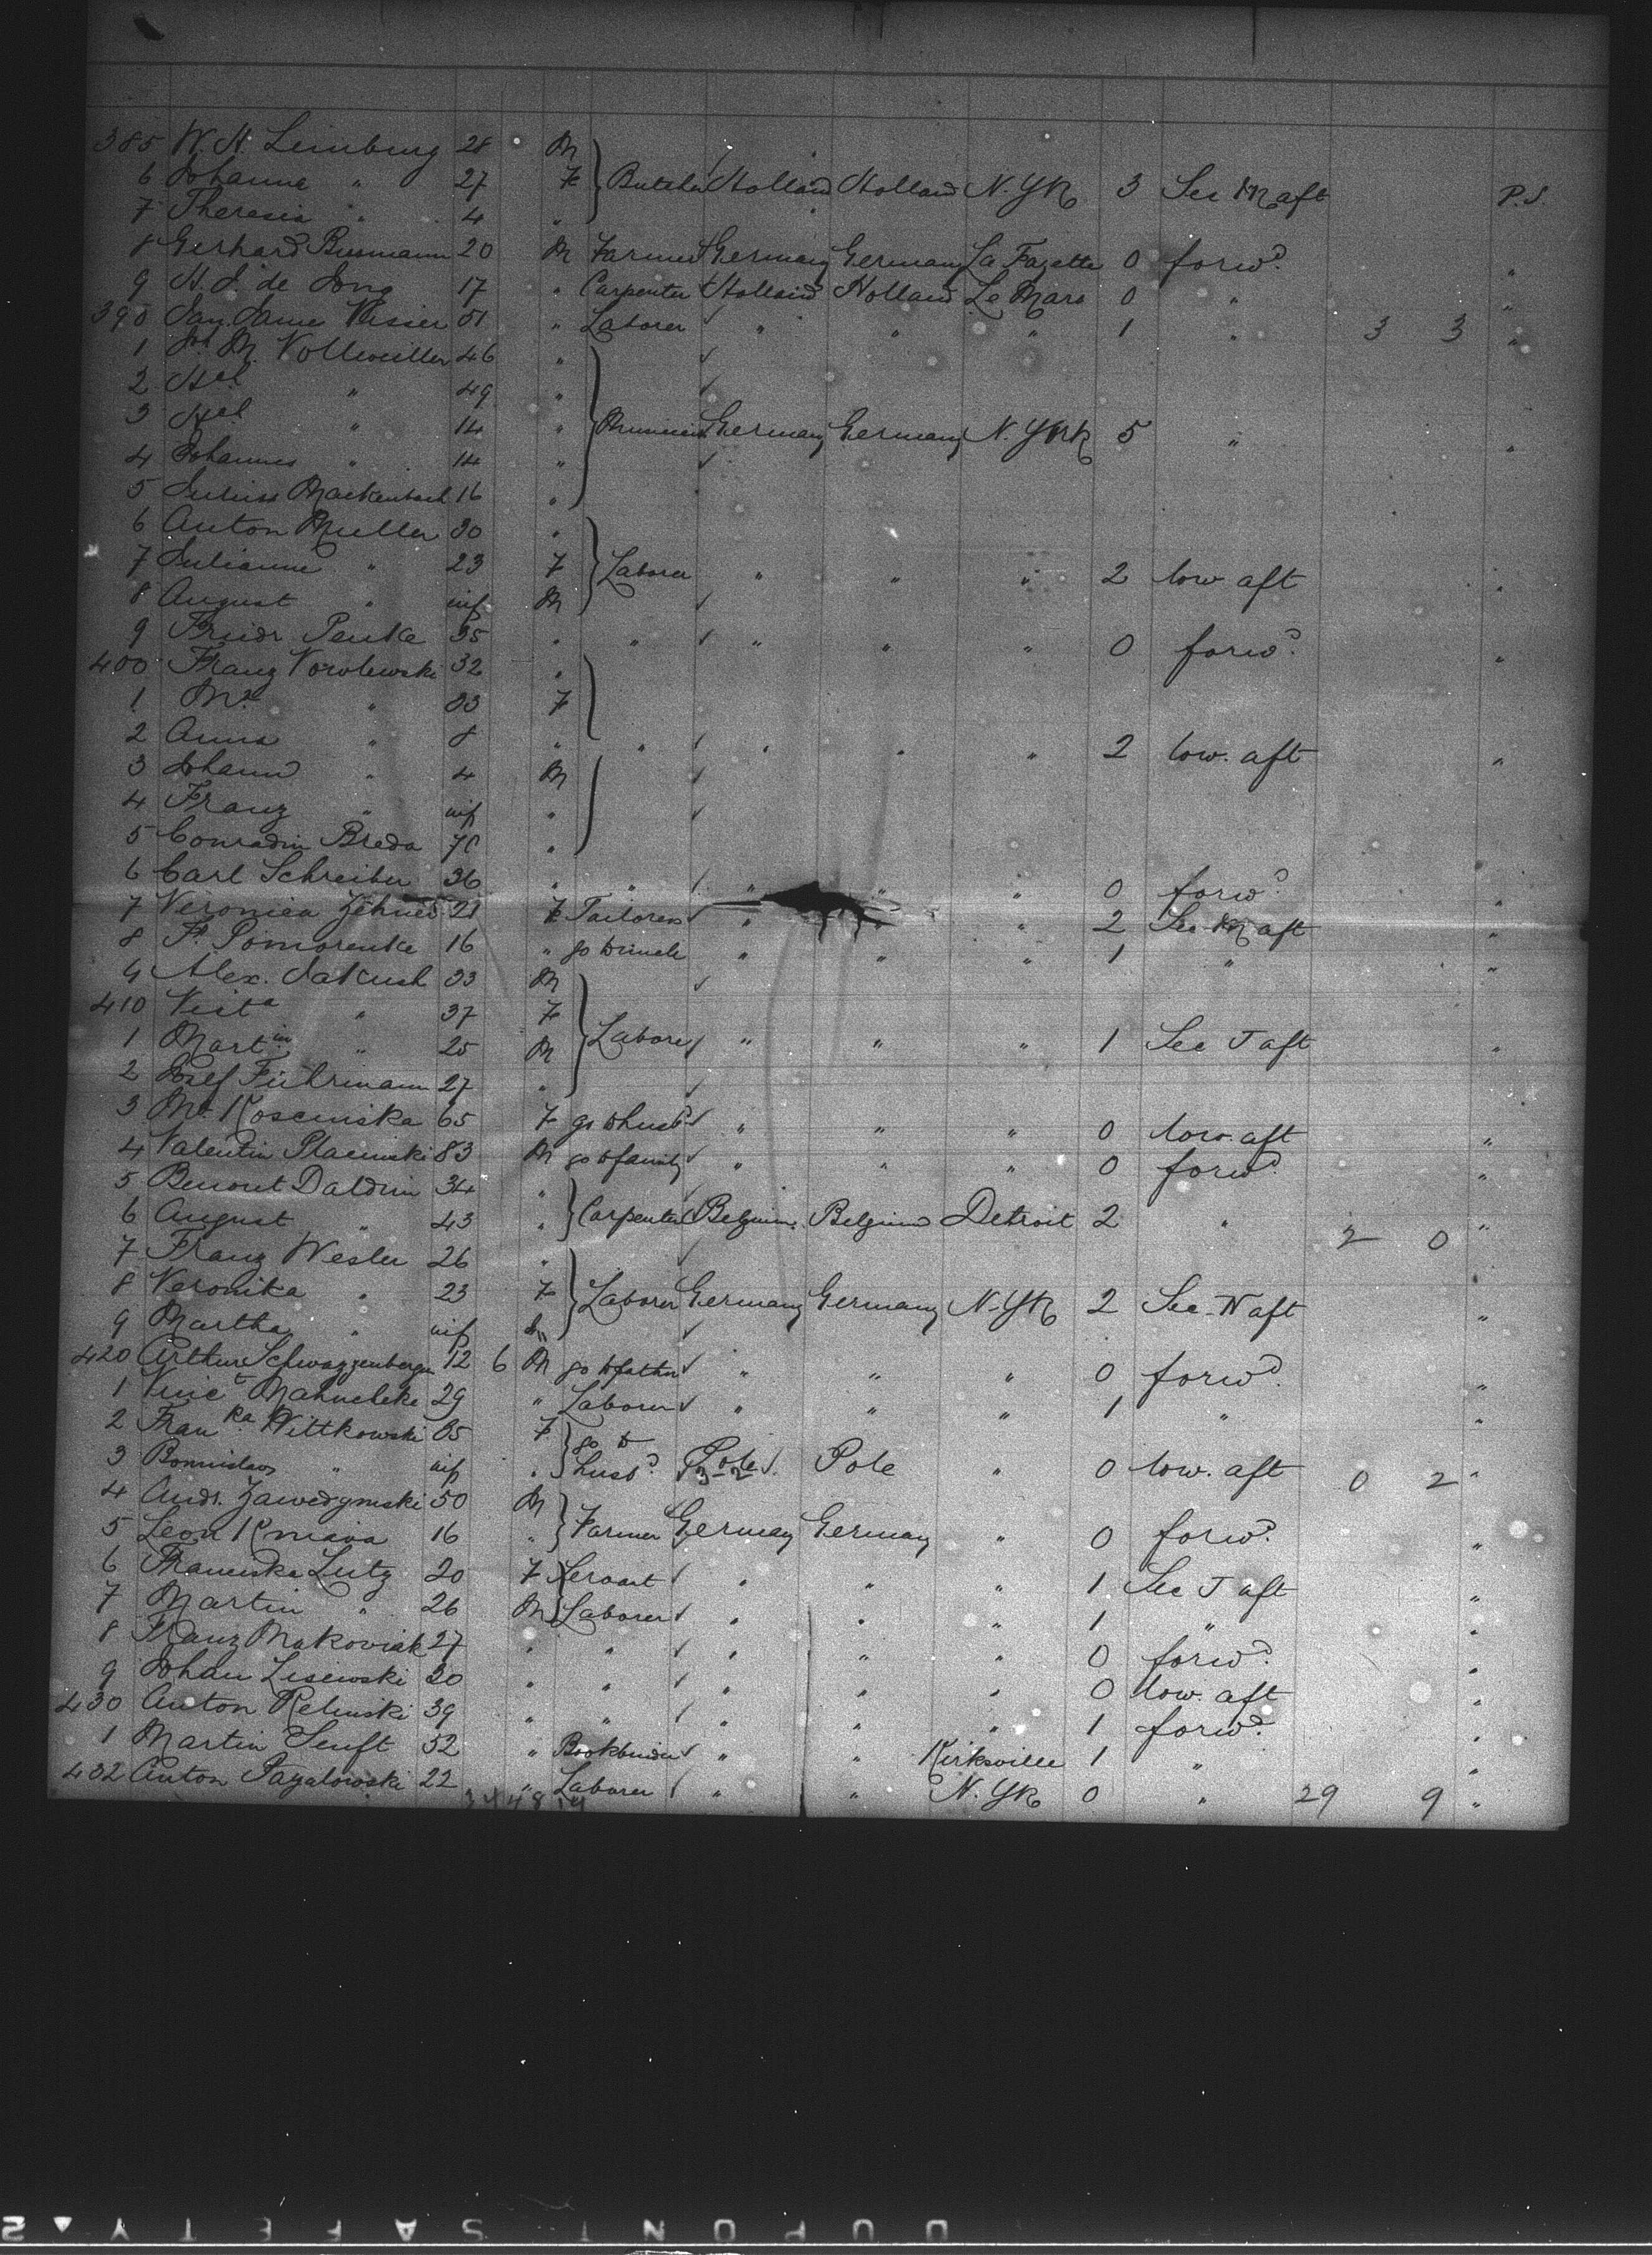 385 W. H. Limburg 28 M
6 Johanna " 27 F Butcher Holland Holland N. YK 3 Sec M aft P.S.
7 Theresia " 4 "
8 Gerhard Busmann 20 M Farmer Germany Germany La Fayette 0 forwd "
9 H. J. de Jong 17 " Carpenter Holland Holland Le Mars 0 " "
390 Jan Visser 51 " Laborer " " " 1 " 3 3 "
1 M. Vollweiller 46 "
2 Hel " 49 "
3 Hel " 14 " Germany Germany N. YRK 5 " "
4 Johannes " 14 "
5 Mackenbach 16 "
6 Anton Muller 30 "
7 Julianne " 23 F Laborer " " " 2 low aft "
8 August " inf M
9 Friedr Penke 35 " " " " " 0 forwd "
400 Franz Vorolewski 32 "
1 Ma " 33 F
2 Anna " 8 " " " " " 2 low. aft "
3 Johann " 4 M
4 Franz " inf "
5 Conradin Breda "
6 Carl Schreiber 36 " " " " " 0 forwd "
7 Veronica Zehner 21 F Tailoress " " " 2 Sec M aft "
8 Fr. Pomorenke 16 " go to uncle " " " 1 " "
9 Alex. Jakush 33 M
410 Vista " 37 F
1 Martin " 25 M Laborer " " " 1 Sec J aft "
2 Josef Führmann 27 "
3 Ma Koscinska 65 F go to husbd " " " 0 low. aft "
4 Valentin Placinski 83 M go to family " " " 0 forwd "
5 Benoit Daldrin 34 "
6 August " 43 " Carpenter Belgium Belgium Detroit 2 " 2 0 "
7 Franz Wesler 26 "
8 Veronika " 23 F Laborer Germany Germany N. YR 2 Sec N aft "
9 Martha " inf "
420 Arthur Schwarzenberger 12 6 M go to father " " " 0 forwd "
1 Vinct Mahucheke 29 " Laborer " " " 1 " "
2 Franka Wittkowski 35 F go to
3 Bronislaw " inf " husbd Pole 3-2 Pole " 0 low. aft 0 2 "
4 Andr. Zawedzynski 50 M
5 Leon Kmiava 16 " Farmer Germany Germany " 0 forwd "
6 Franciska Lutz 20 F Servant " " " 1 Sec J aft "
7 Martin " 26 M Laborer " " " 1 " "
8 Franz Makoviak 27 " " " " " 0 forwd "
9 Johan Lisewski 30 " " " " " 0 low. aft "
430 Anton Relinski 39 " " " " " 1 forwd "
1 Martin Senft 52 " Bookbinder " " Kirksville 1 " "
432 Anton Pagalowski 22 " Laborer " " N. YR 0 " 29 9 "
DUPONT SAFETY 2